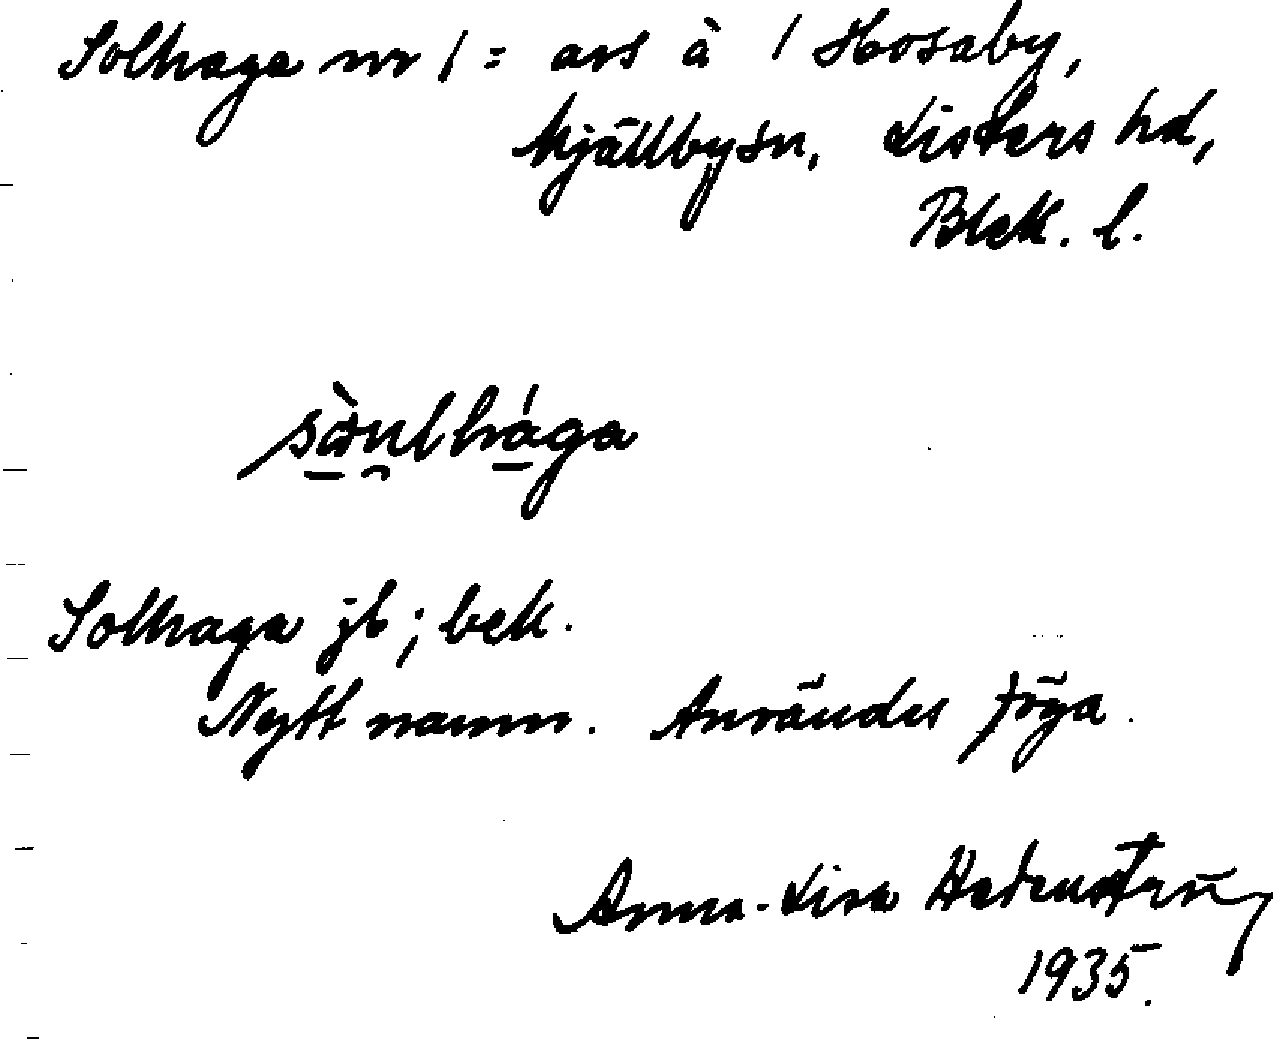 Solhaga nr 1 = avs å 1 Hosaby,
Mjällby sn, Listers hd,
Blek. l.
sòulhága
Solhaga jb; bek.
Nytt namn. Användes föga.
Anna-Lisa
1935.